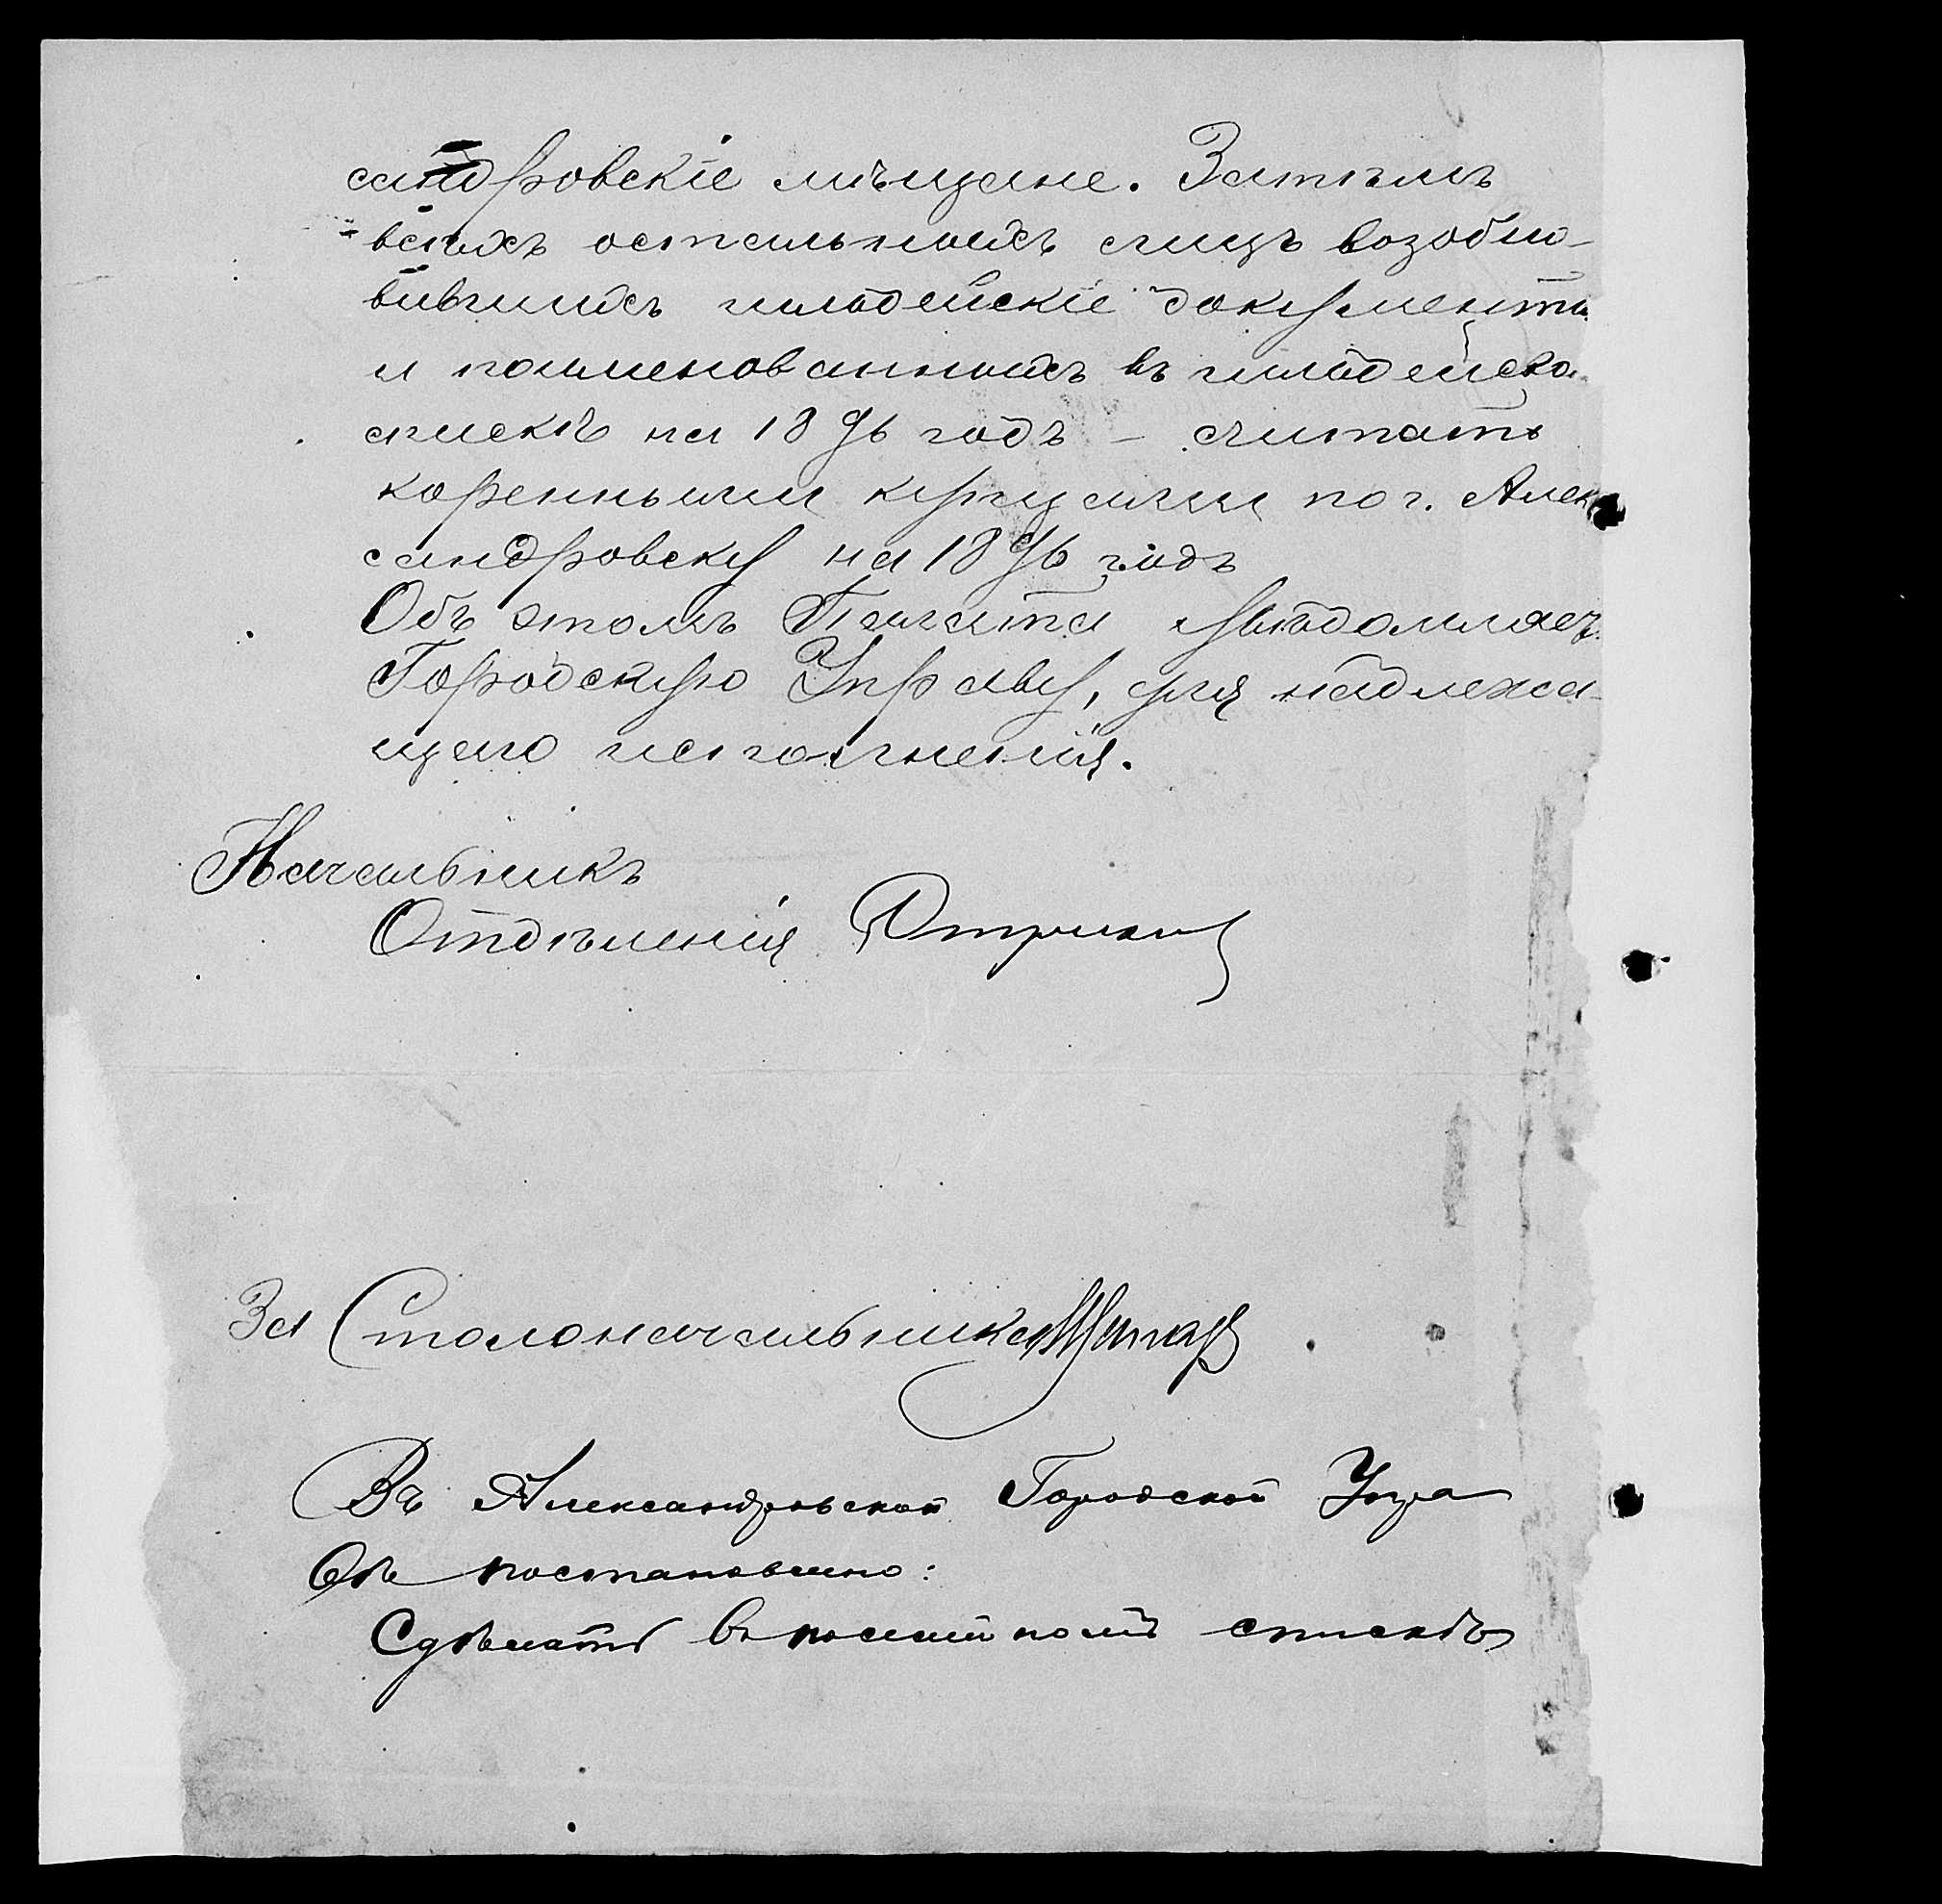 сандровскіе мѣщане. Затѣмъ
всѣхъ остальныхъ лицъ возобно-
вившихъ гильдейскіе документы
и поименованныхъ въ гильдейско
спискѣ на 1896 годъ – считать
коренными купцами по г. Алек
сандровску на 1896 годъ
Объ этомъ Палата увѣдомляет
Городскую Управу, для надлежа-
щаго исполненія.
Начальникъ
Отдѣленія
За Столоначальника
Въ Александровской Городской Упра
постановлено:
Сдѣлать въ спискѣ